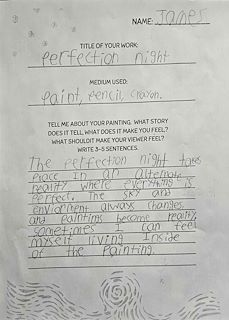 NAME: James
TITLE OF YOUR WORK:
Perfection night
MEDIUM USED:
Paint, Pencil, Crayon.
TELL ME ABOUT YOUR PAINTING. WHAT STORY
DOES IT TELL, WHAT DOES IT MAKE YOU FEEL?
WHAT SHOULD IT MAKE YOUR VIEWER FEEL?
WRITE 3-5 SENTENCES.
The perfection night takes
place in an alternate
reality where everything is
perfect. The sky and
enviorment always changes.
and paintings become reality
sometimes I can feel
myself living inside
of the Painting.